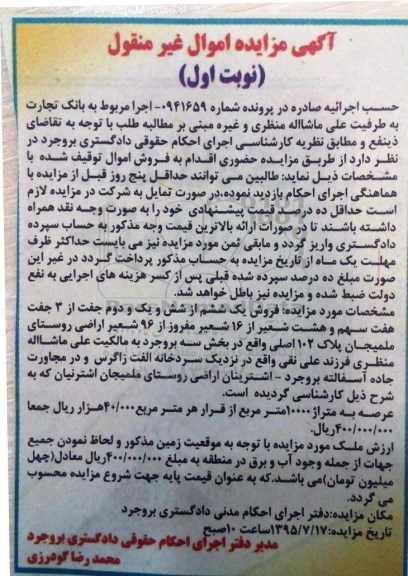 آگهی مزایده اموال غیر منقول
(نوبت اول)
حسب اجرائیه صادره در پرونده شماره ۰۹۴۱۶۵۹- اجرا مربوط به بانک تجارت
به طرفیت علی ماشااله منظری و غیره مبنی بر مطالبه طلب با توجه به تقاضای
ذینفع و مطابق نظریه کارشناسی اجرای احکام حقوقی دادگستری بروجرد در
نظر دارد از طریق مزایده حضوری اقدام به فروش اموال توقیف شده با
مشخصات ذیل نماید: طالبین می توانند حداقل پنج روز قبل از مزایده با
هماهنگی اجرای احکام بازدید نموده،در صورت تمایل به شرکت در مزایده لازم
است حداقل ده درصد قیمت پیشنهادی خود را به صورت وجه نقد همراه
داشته باشند تا در صورات ارائه بالاترین قیمت وجه مذکور به حساب سپرده
دادگستری واریز گردد و مابقی ثمن مورد مزایده نیز می بایست حداکثر ظرف
مهلت یک ماه از تاریخ مزایده به حساب مذکور پرداخت گردد در غیر این
صورت مبلغ ده درصد سپرده شده قبلی پس از کسر هزینه های اجرایی به نفع
دولت ضبط شده و مزایده نیز باطل خواهد شد.
مشخصات مورد مزایده: فروش یک ششم از شش و یک و دوم جفت از ۳ جفت
هفت سهم و هشت شعیر از ۱۶ شعیر مفروز از ۹۶ شعیر اراضی روستای
ملمیجان پلاک ۱۰۲ اصلی واقع در بخش سه بروجرد به مالکیت علی ماشااله
منظری فرزند علی نقی واقع در نزدیک سردخانه الفت زاگرس و در مجاورت
جاده آسفالته بروجرد - اشترینان اراضی روستای ملمیجان اشترنیان که به
شرح ذیل کارشناسی گردیده است.
عرصه به متراژ ۱۰۰۰۰متر مربع از قرار هر متر مربع ۴۰/۰۰۰هزار ریال جمعا
۴۰۰/۰۰۰/۰۰۰ریال.
ارزش ملک مورد مزایده با توجه به موقعیت زمین مذکور و لحاظ نمودن جمیع
جهات از جمله وجود آب و برق در منطقه به مبلغ ۴۰۰/۰۰۰/۰۰۰ریال معادل(چهل
میلیون تومان)می باشد.که به عنوان قیمت پایه جهت شروع مزایده محسوب
می گردد.
مکان مزایده:دفتر اجرای احکام مدنی دادگستری بروجرد
تاریخ مزایده:۱۳۹۵/۷/۱۷ساعت ۱۰صبح
مدیر دفتر اجرای احکام حقوقی دادگستری بروجرد
محمد رضا گودرزی